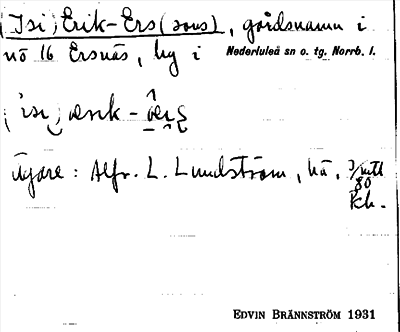 (Isi) Erik-Ers (sons), gårdsnamn i
nö 16 Ersnäs, by i Nederluleå sn o. tg. Norrb. l.
Ägare: Alfr. L. Lundström,
80
EDVIN BRÄNNSTRÖM 1931